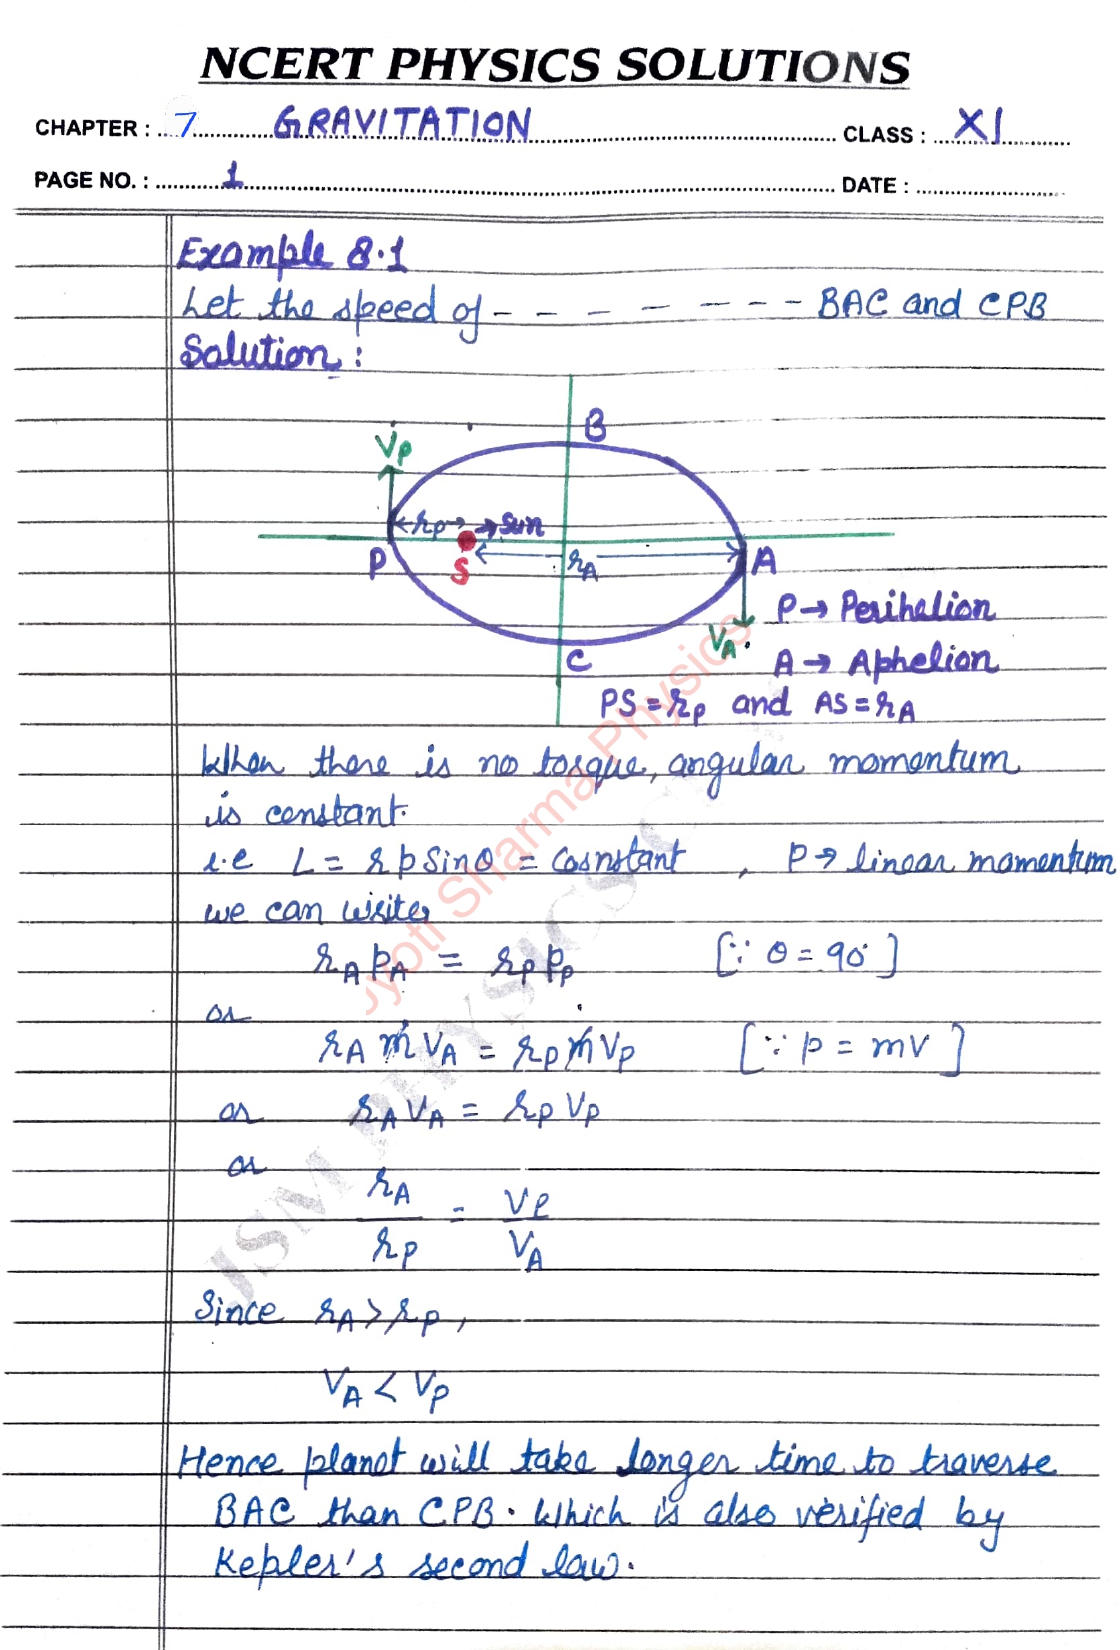 NCERT PHYSICS SOLUTIONS
CHAPTER : 7 GRAVITATION CLASS : XI
PAGE NO. : 1 DATE :
Example 8.1
Let the speed of - - - - - - - BAC and CPB
Solution :
B
Vp
rp → Sun
P S rA A
P → Perihelion
VA
A → Aphelion
C
PS = rp and AS = rA
When there is no torque, angular momentum
is constant.
i.e L = r p sinθ = Cosnstant , P → linear momentum
we can write,
rA pA = rp pp [∵ θ = 90°]
or
rA m VA = rp m Vp [∵ p = mv]
or rA VA = rp Vp
or
rA / rp = Vp / VA
Since rA > rp,
VA < Vp
Hence planet will take longer time to traverse
BAC than CPB. Which is also verified by
Kepler's second law.
Jyoti Sharma Physics
JSM PHYSICS